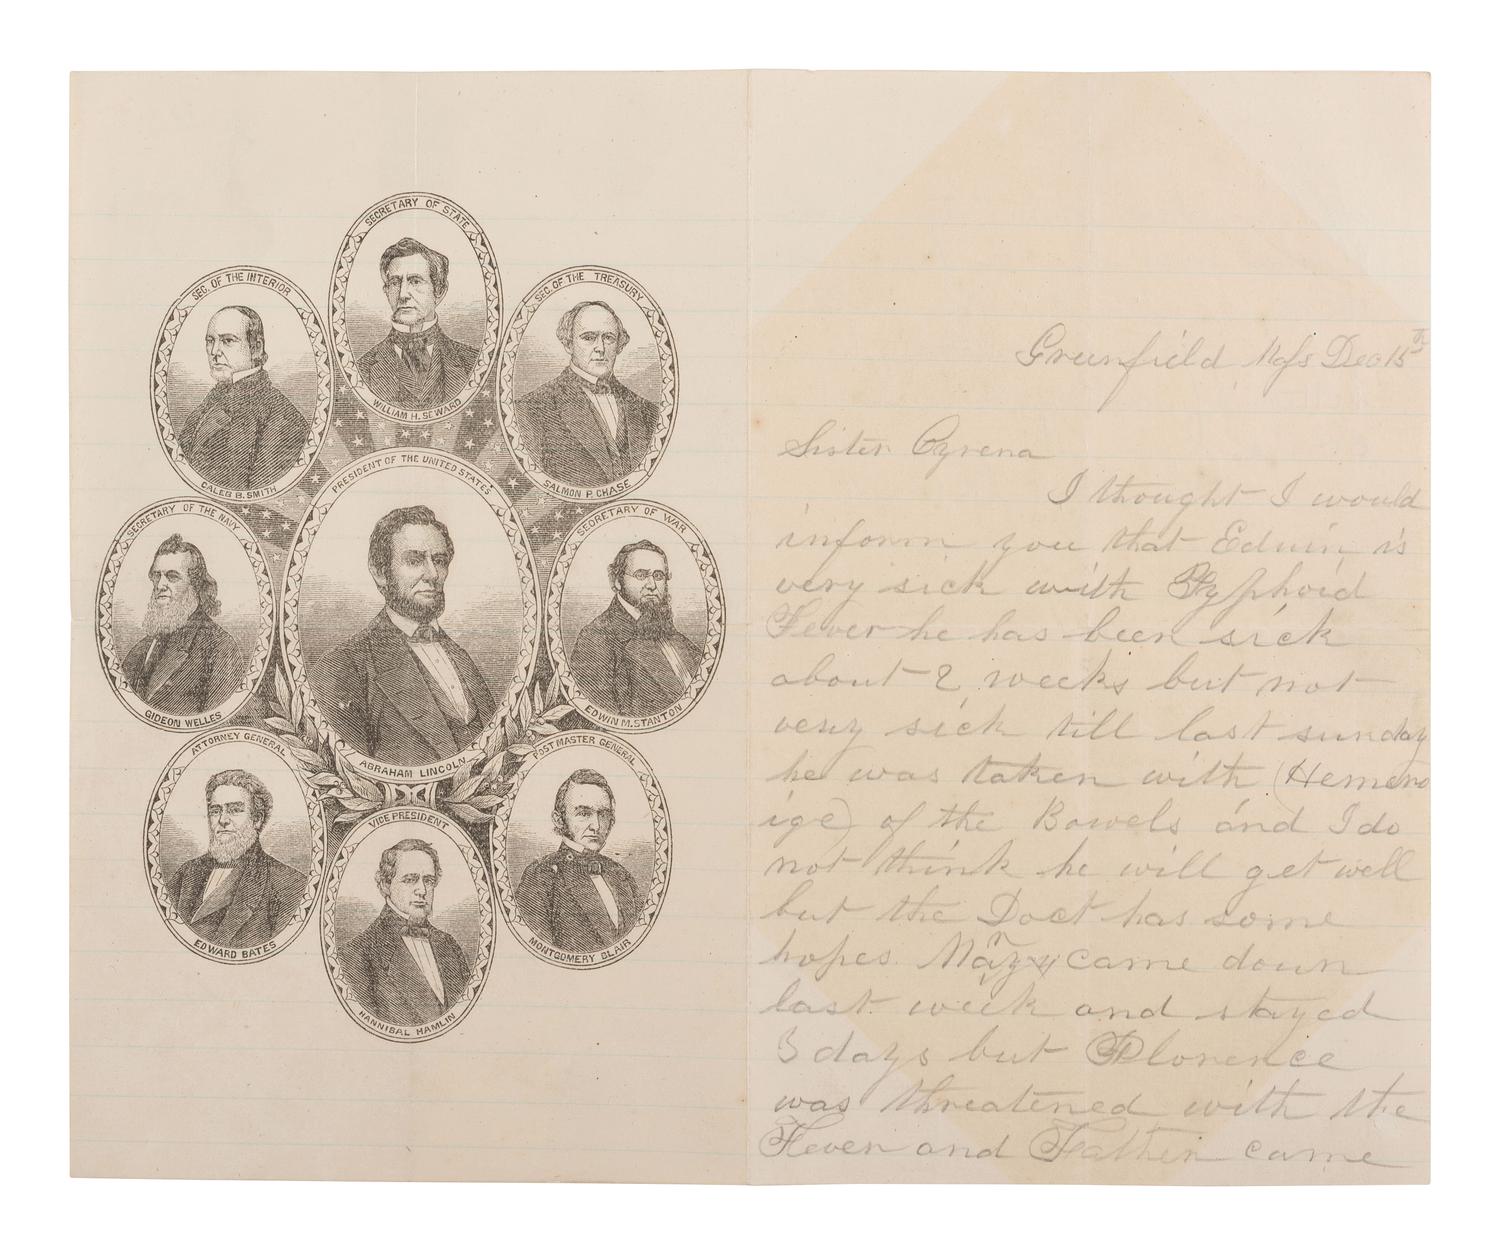 SECRETARY OF STATE
WILLIAM H. SEWARD
SEC. OF THE INTERIOR
CALEB B. SMITH
SEC. OF THE TREASURY
SALMON P. CHASE
PRESIDENT OF THE UNITED STATES
ABRAHAM LINCOLN
SECRETARY OF THE NAVY
GIDEON WELLES
SECRETARY OF WAR
EDWIN M. STANTON
ATTORNEY GENERAL
EDWARD BATES
POST MASTER GENERAL
MONTGOMERY BLAIR
VICE PRESIDENT
HANNIBAL HAMLIN
Greenfield Mass Dec 15th
Sister Cyrena
I thought I would
inform you that Edwin is
very sick with Typhoid
Fever he has been sick
about 2 weeks but not
very sick till last sunday
he was taken with (Hemero
ige) of the Bowels and I do
not think he will get well
but the Doct has some
hopes. came down
last week and stayed
3 days but Florence
was threatened with the
Fever and Father came